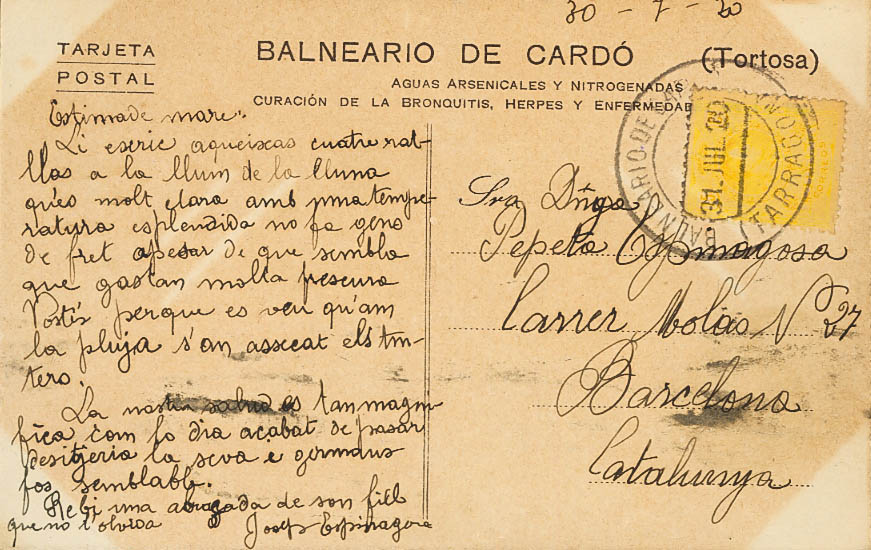 30 - 7 - 20
TARJETA
POSTAL
BALNEARIO DE CARDÓ (Tortosa)
AGUAS ARSENICALES Y NITROGENADAS
CURACIÓN DE LA BRONQUITIS, HERPES Y ENFERMEDAD
BALNEARIO DE
31 JUL 20
(TARRAGONA
Estimade mare:
Li escric aqueixas cuatre rat-
llas a la llum de la lluna
qu'es molt clara amb una tempe-
ratura esplendida no fa gens
de fret apesar de que sembla
que gastan molta frescura
Vostés perque es veu qu'am
la pluja s'an assecat els tin-
ters.
La nostra salud es tan magni-
fica com lo dia acabat de pasar
desitjeria la seva e germans
fos semblable.
Rebi una abraçada de son fill
que no l'olvida Josep Espinagosa
Sra Dña
Pepeta Espinagosa
Carrer Molas Nº 27
Barcelona
Catalunya